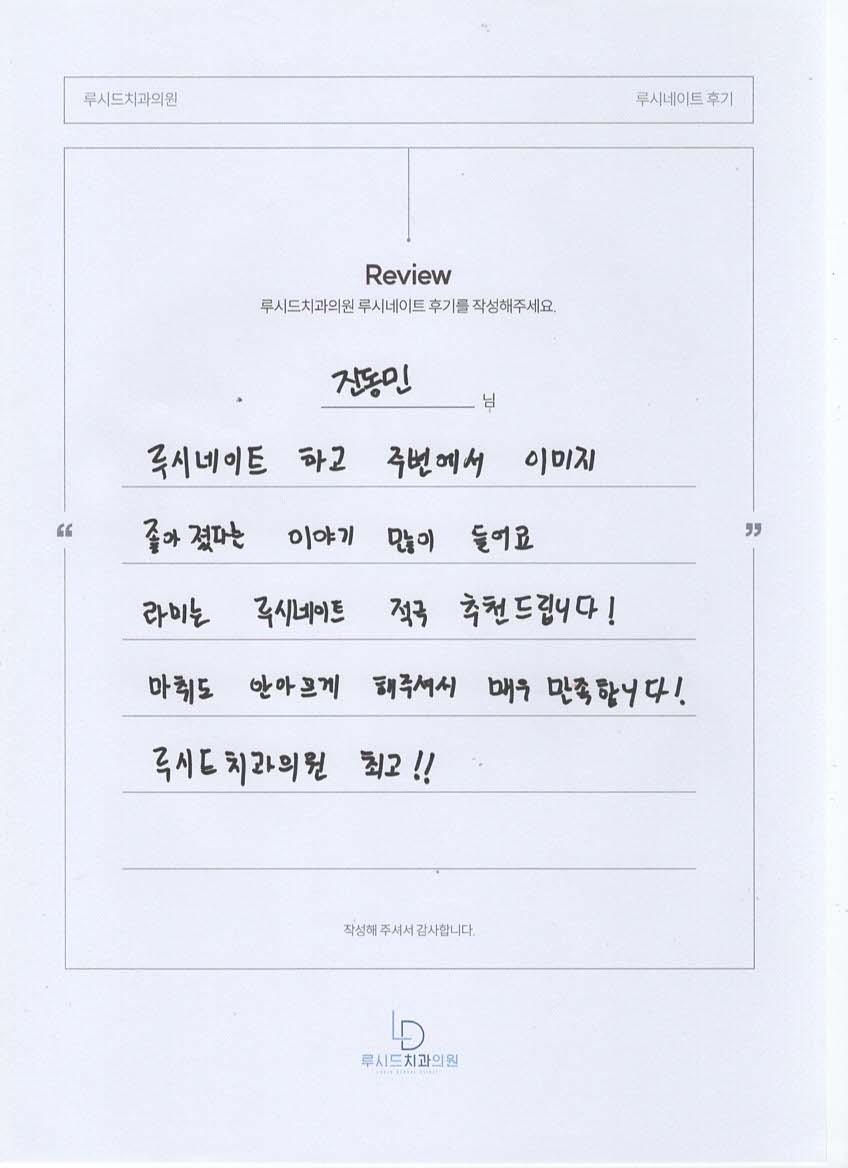 루시드치과의원 루시네이트 후기
Review
루시드치과의원 루시네이트 후기를 작성해주세요.
잔동민 님
루시네이트 하고 주변에서 이미지
좋아 졌다는 이야기 많이 들어요
“ ”
라미는 루시네이트 적극 추천드립니다!
마취도 안아프게 해주셔서 매우 만족합니다!
루시드치과의원 최고!!
작성해 주셔서 감사합니다.
LD
루시드치과의원